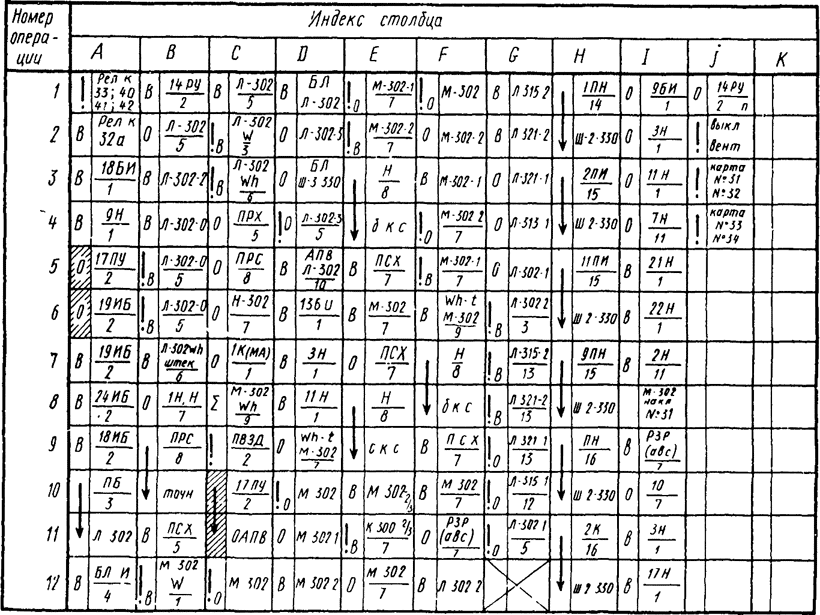 Номер опера-ции
Индекс столбца
A B C D E F G H I j K
1 ! Рел к 33; 40 41; 42 | В 14РУ/2 | В Л-302/5 | В БЛ Л-302 | !о М-302-1/7 | !о М-302 | В Л 315-2 | ↓ 1ПН/14 | О 9БИ/1 | О 14РУ/2 п
2 В Рел к 32а | О Л-302/5 | !в Л-302 W/3 | О Л-302-3 | !в М-302-2/7 | О М-302-2 | В Л 321-2 | ↓ Ш-2-330 | О 3Н/1 | ! Выкл вент
3 В 18БИ/1 | В Л-302-2 | !в Л-302 Wh/6 | О БЛ Ш-3 330 | ↓ Н/8 | В М-302-1 | О Л-321-1 | ↓ 2ПИ/15 | О 11Н/1 | ! карта №31 №32
4 В 9Н/1 | В Л-302-0 | О ПРХ/5 | !О Л-302-3/5 | ↓ δ к с | !о М-302 2/7 | О Л-313 1 | ↓ Ш 2-330 | О 7Н/11 | ! карта №33 №34
5 О 17ПУ/2 | !в Л-302-0/5 | О ПРС/8 | В АПВ Л-302/10 | В ПСХ/7 | !в М-302-1/7 | О Л-302-1 | ↓ 11ПИ/15 | В 21Н/1
6 О 19ИБ/2 | !в Л-302-0/5 | О Н-302/7 | В 13БИ/1 | В М-302/7 | В Wh-t М-302/9 | !в Л-302 2/3 | ↓ Ш 2-330 | В 22Н/1
7 В 19ИБ/2 | В Л-302Wh штек/6 | О 1К(МА)/1 | В 3Н/1 | О ПСХ/7 | ↓ Н/8 | !в Л-315-2/13 | ↓ 9ПН/15 | В 2Н/11
8 В 24ИБ/2 | О 1Н, Н/7 | Σ М-302 Wh/9 | В 11Н/1 | ↓ Н/8 | ↓ δ к с | !в Л 321-2/13 | ↓ Ш 2-330 | М-302 накл №31
9 В 18ИБ/2 | ↓ ПРС/8 | ! ПВЗД/2 | О Wh-t М-302/7 | ↓ с к с | В ПСХ/7 | !о Л 321 1/13 | ↓ ПН/16 | В РЗР (авс)/7
10 ↓ ПБ/3 | ↓ точн | ↓ 17ПУ/2 | !о М 302 | В М 302 2/3 | В М 302/7 | !о Л-315 1/12 | ↓ Ш 2-330 | О 10/7
11 ↓ Л 302 | В ПСХ/5 | ↓ ОАПВ | О М 302 1 | !в К 300 2/3/7 | О РЗР (авс)/7 | !о Л-302 1/5 | ↓ 2К/16 | В 3Н/1
12 В БЛ И/4 | !в М 302 W/1 | !о М 302 | В М 302 2 | О М 302/7 | В Л 302 2 | ↓ Ш 2 330 | В 17Н/1